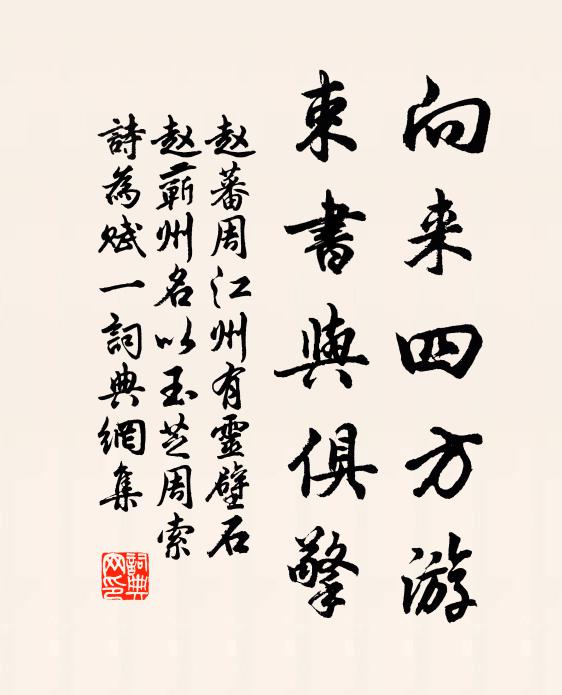 向来四方游
束書與俱擎
赵蕃周江州有靈壁石
赵蕲州名以玉芝周索
詩為赋一詞典網集
詞典网印